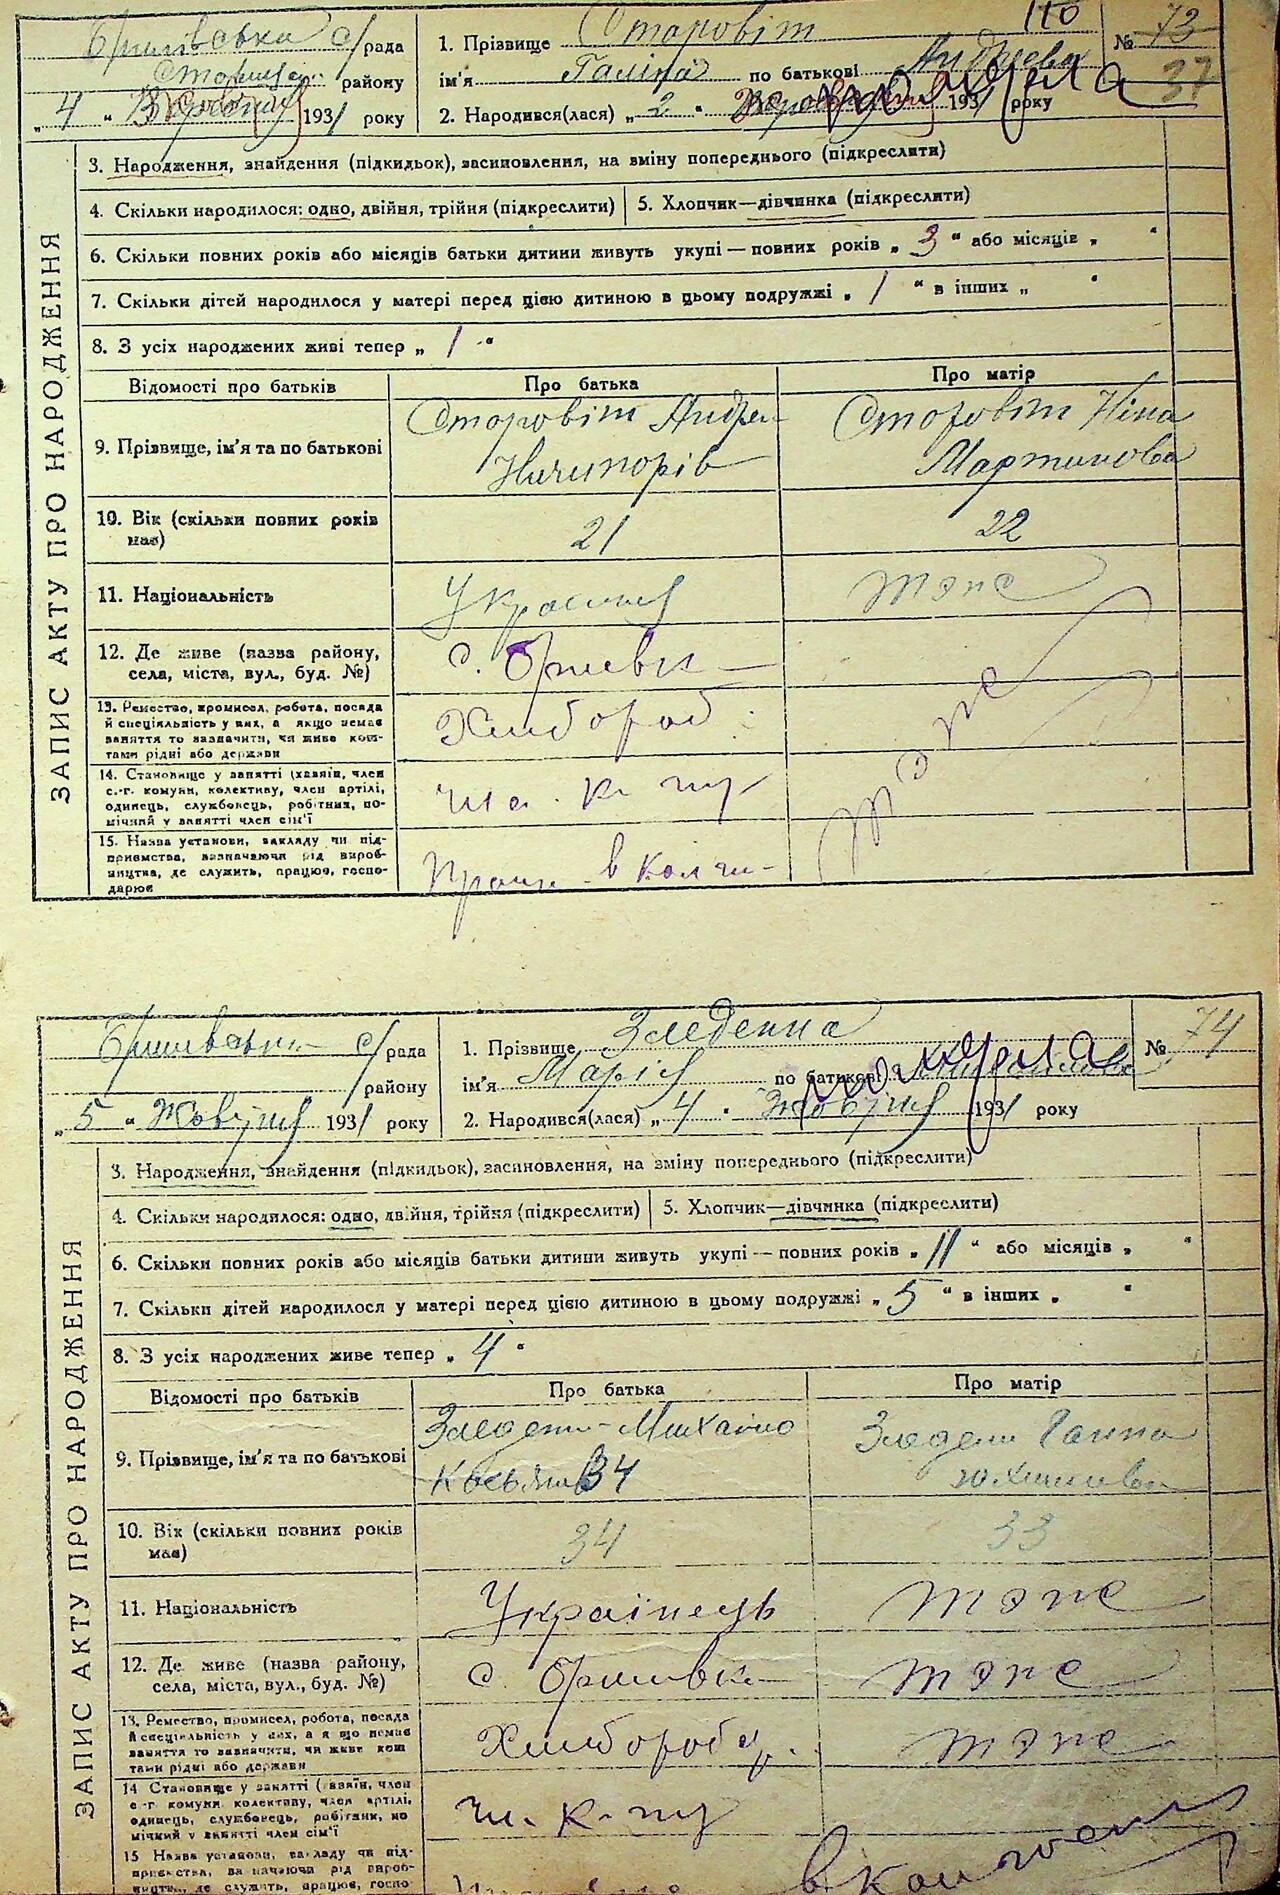 с/рада
району
„ 4 “ 1931 року
1. Прізвище Старовіт
№ 73
37
ім'я Галіна по батькові Андреева
2. Народився(лася) „ 2 “ 1931 року
померла
ЗАПИС АКТУ ПРО НАРОДЖЕННЯ
3. Народження, знайдення (підкидьок), засиновлення, на зміну попереднього (підкреслити)
4. Скільки народилося: одно, двійня, трійня (підкреслити) 5. Хлопчик—дівчинка (підкреслити)
6. Скільки повних років або місяців батьки дитини живуть укупі — повних років „ 3 “ або місяців „ “
7. Скільки дітей народилося у матері перед цією дитиною в цьому подружжі „ 1 “ в інших „ “
8. З усіх народжених живі тепер „ 1 “
Відомості про батьків Про батька Про матір
9. Прізвище, ім'я та по батькові
Старовіт Андрей
Ничипорів
Старовіт Ніна
Мартинова
10. Вік (скільки повних років
має)
21 22
11. Національність
тэже
12. Де живе (назва району,
села, міста, вул., буд. №)
с.
13. Ремество, промисел, робота, посада
й спеціяльність у них, а якщо немає
заняття то зазначити, чи живе кош-
тами рідні або держави
Хлибороб
14. Становище у занятті (хазяїн, член
с.-г. комуни, колективу, член артілі,
одинець, службовець, робітник, по-
мічний у занятті член сім'ї
чл. к-ту
15. Назва установи, закладу чи під-
приємства, зазначаючи рід вироб-
ництва, де служить, працює, госпо-
дарює
тэже
с/рада
району
„ 5 “ Жовтня 1931 року
1. Прізвище Зледенна
№ 74
ім'я Марія по батькові
2. Народився(лася) „ 4 “ Жовтня 1931 року
померла
ЗАПИС АКТУ ПРО НАРОДЖЕННЯ
3. Народження, знайдення (підкидьок), засиновлення, на зміну попереднього (підкреслити)
4. Скільки народилося: одно, двійня, трійня (підкреслити) 5. Хлопчик—дівчинка (підкреслити)
6. Скільки повних років або місяців батьки дитини живуть укупі — повних років „ 11 “ або місяців „ “
7. Скільки дітей народилося у матері перед цією дитиною в цьому подружжі „ 5 “ в інших „ “
8. З усіх народжених живе тепер „ 4 “
Відомості про батьків Про батька Про матір
9. Прізвище, ім'я та по батькові
Михайло
34
Ганна
10. Вік (скільки повних років
має)
34 33
11. Національність
Українець тэже
12. Де живе (назва району,
села, міста, вул., буд. №)
с тэже
13. Ремество, промисел, робота, посада
й спеціяльність у них, а якщо немає
заняття то зазначити, чи живе кош
тами рідні або держави
тэже
14 Становище у занятті (хазяїн, член
с-г. комуни колективу, член артілі,
одинець, службовець, робітник, по
мічний у занятті член сім'ї
чл. к-ту
15 Назва установи, закладу чи під-
приємства, зазначаючи рід вироб-
ництва, де служить, працює, госпо-